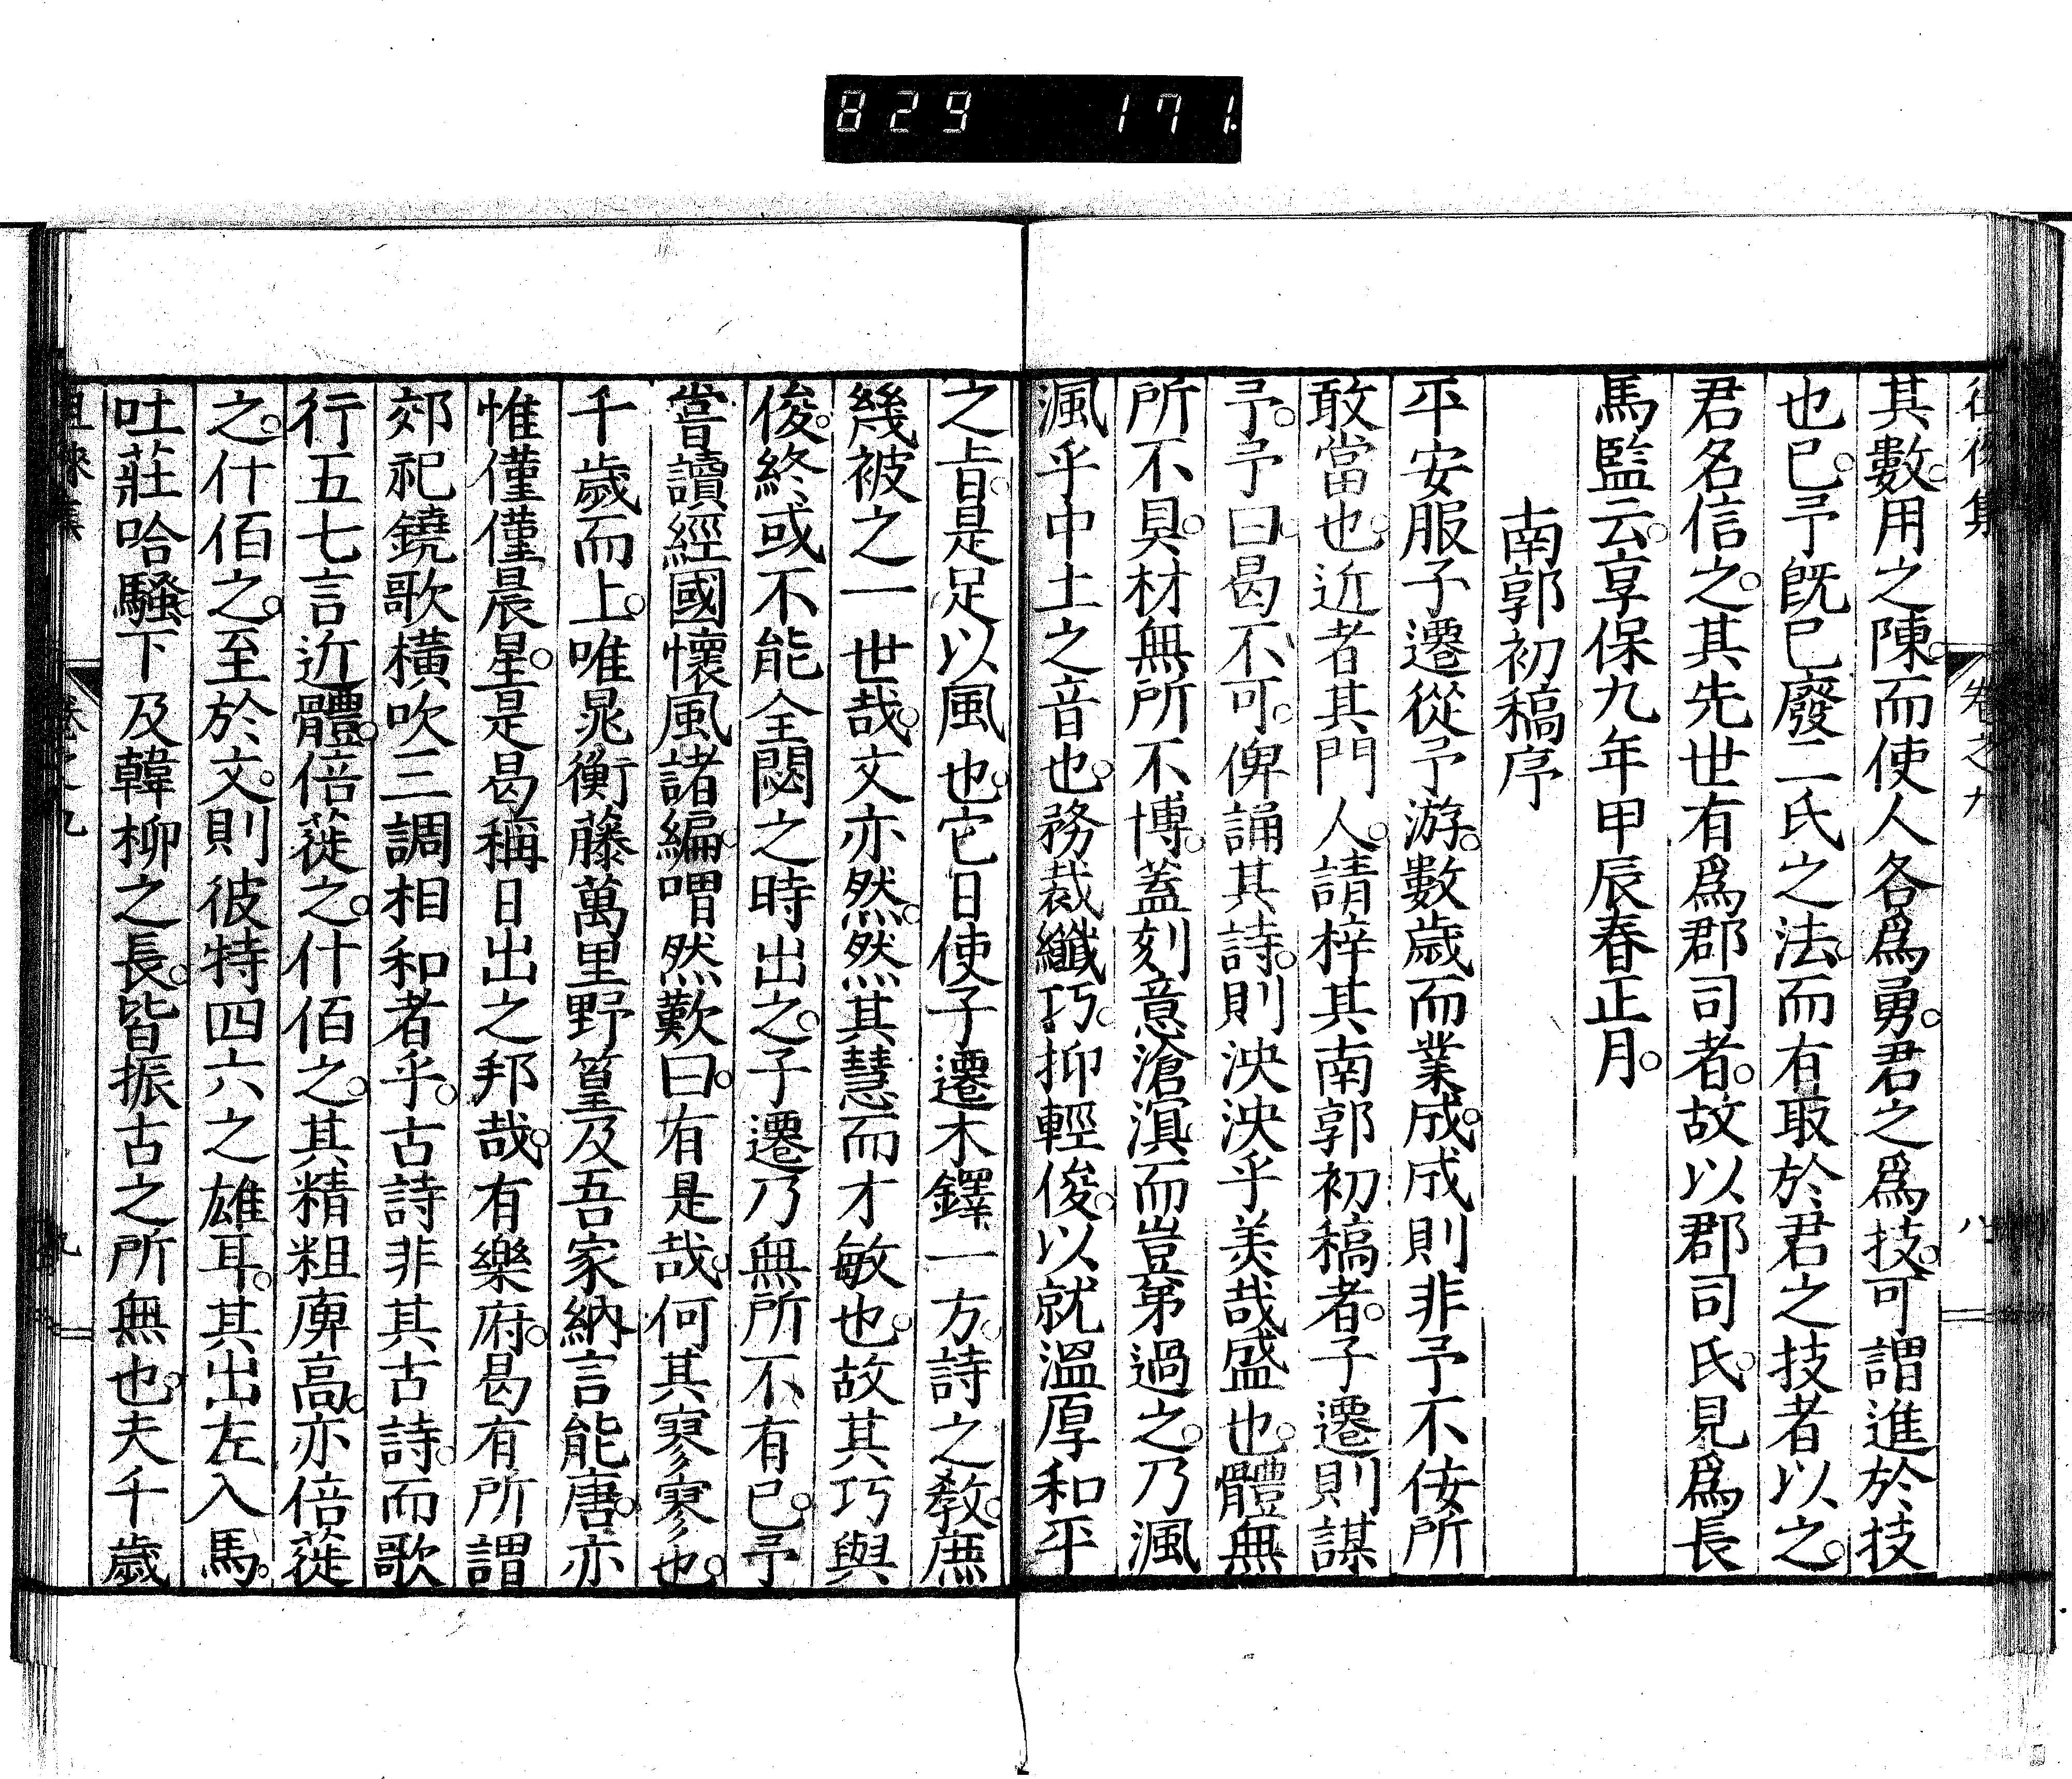 829 171.
徂徠集 卷之九 八
其數。用之陳。而使人各爲勇。君之爲技。可謂進於技
也已。予旣已廢二氏之法。而有取於君之技者以之。
君名信之。其先世有爲郡司者。故以郡司氏。見爲長
馬監云。享保九年甲辰春正月。
南郭初稿序
平安服子遷從予游。數歲而業成。成則非予不佞所
敢當也。近者其門人。請梓其南郭初稿者。子遷則謀
予。予曰。曷不可。俾誦其詩。則泱泱乎美哉盛也。體無
所不具。材無所不博。蓋刻意滄溟。而豈第過之。乃渢
渢乎中土之音也。務裁纖巧。抑輕俊。以就溫厚和平
之旨。是足以風也。它日使子遷木鐸一方。詩之敎。庶
幾被之一世哉。文亦然。然其慧而才敏也。故其巧與
俊。終或不能全閟之。時出之。子遷乃無所不有已。予
嘗讀經國懷風諸編。喟然歎曰。有是哉。何其寥寥也。
千歲而上。唯晁衡藤萬里野篁及吾家納言能唐。亦
惟僅僅晨星。是曷稱日出之邦哉。有樂府。曷有所謂
郊祀鐃歌橫吹三調相和者乎。古詩非其古詩。而歌
行五七言近體。倍蓰之。什佰之。其精粗庳高。亦倍蓰
之。什佰之。至於文。則彼特四六之雄耳。其出左入馬。
吐莊哈騷。下及韓柳之長。皆振古之所無也。夫千歲
徂徠集 卷之九 九